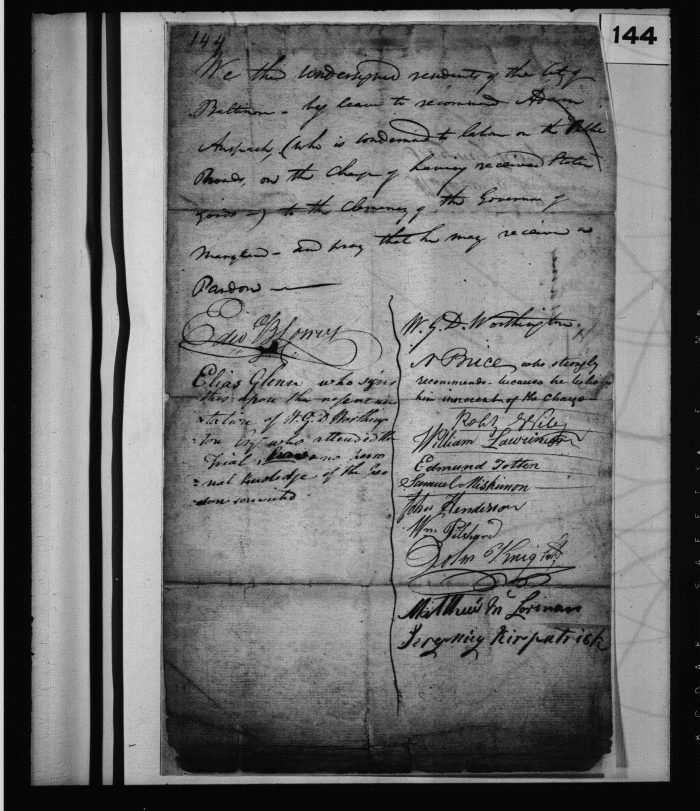 144
144
We the undersigned residents of the City of
Baltimore - beg leave to recommend Adam
(who is condemned to labour on the Public
Roads, on the Charge of having received Stolen
goods -) to the Clemency of the Governor of
Maryland - and pray that he may receive a
Pardon
Elias Glenn who signs
this upon the represen
tation of W. G. D. Worthing
ton esq who attended the
Trial, no perso
nal knowledge of the per
son convicted
W. G. D. Worthington.
N Brice, who strongly
recommends because he believes
him innocent of the charge
William
Edmund Totten
Samuel
John Henderson
Wm
John Knight
Matthew
Kirpatrick